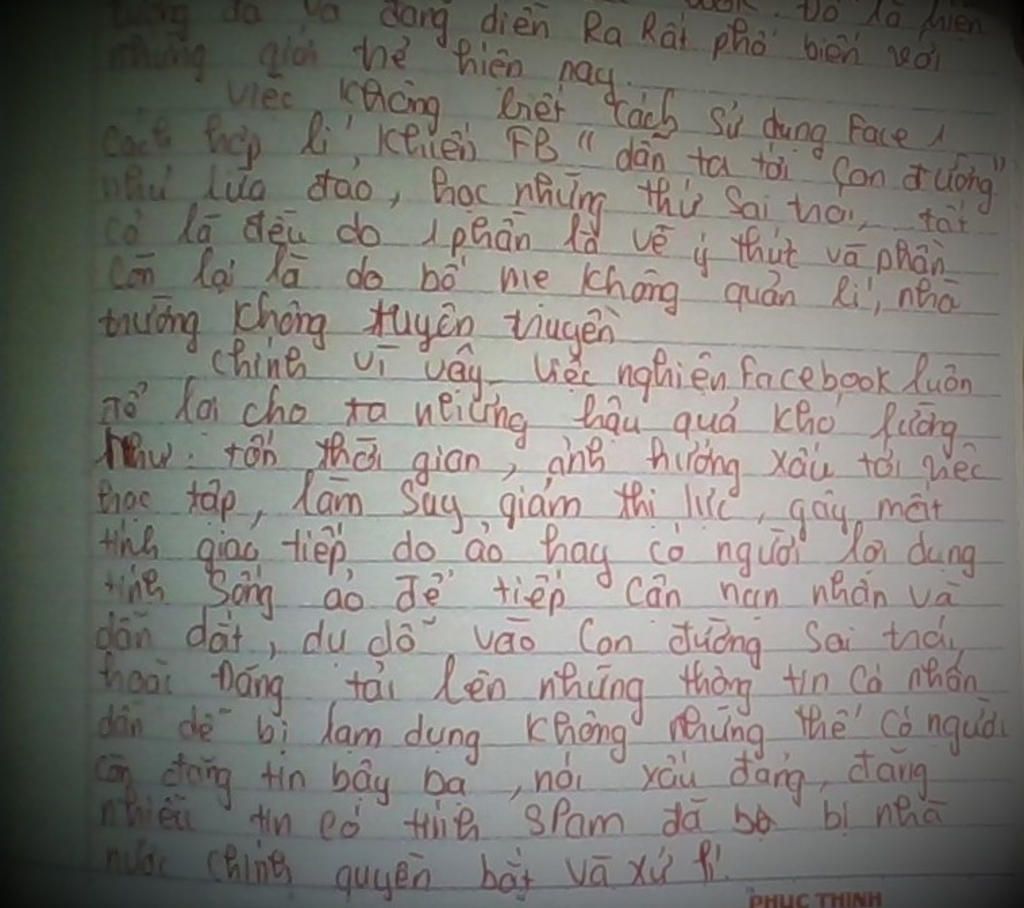 đã và đang diễn Ra Rất phổ biến với
những giới thế hiện nay.
Việc không biết cách sử dụng Face 1
cách hợp lí, khiến FB " dẫn ta tới "con đường"
như lừa đảo, học những thứ sai trái, tất
cả là đều do 1 phần là về ý thức và phần
còn lại là do bố mẹ không quản lí, nhà
trường không tuyên truyền
Chính vì vậy việc nghiện facebook luôn
để lại cho ta những hậu quả khó lường
như: tốn thời gian, ảnh hưởng xấu tới việc
học tập, làm suy giảm thị lực, gây mất
tính giao tiếp do ảo hay có người lợi dụng
tính sống ảo để tiếp cận nạn nhân và
dẫn dắt, dụ dỗ vào con đường sai trái,
hoặc Đăng tải lên những thông tin cá nhân
dẫn dễ bị lạm dụng không những thế có người
còn đăng tin bậy bạ, nói xấu đảng, đăng
nhiều tin có tính spam đã bị nhà
nước chính quyền bắt và xử lí.
PHUC THINH